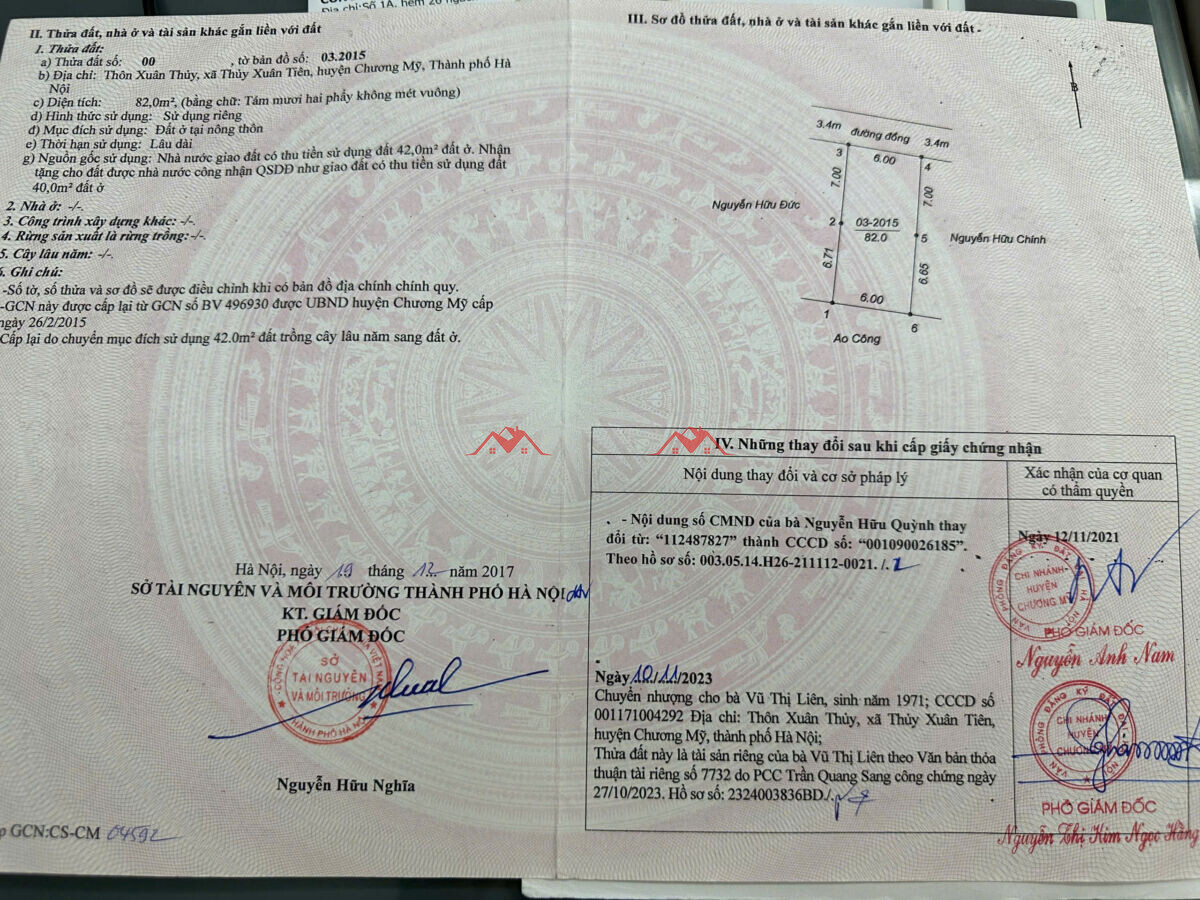 Địa chỉ: Số 1A, hẻm 26
II. Thửa đất, nhà ở và tài sản khác gắn liền với đất
1. Thửa đất:
a) Thửa đất số: 00 , tờ bản đồ số: 03.2015
b) Địa chỉ: Thôn Xuân Thủy, xã Thủy Xuân Tiên, huyện Chương Mỹ, Thành phố Hà
Nội
c) Diện tích: 82,0m², (bằng chữ: Tám mươi hai phẩy không mét vuông)
d) Hình thức sử dụng: Sử dụng riêng
đ) Mục đích sử dụng: Đất ở tại nông thôn
e) Thời hạn sử dụng: Lâu dài
g) Nguồn gốc sử dụng: Nhà nước giao đất có thu tiền sử dụng đất 42,0m² đất ở. Nhận
tặng cho đất được nhà nước công nhận QSDĐ như giao đất có thu tiền sử dụng đất
40,0m² đất ở
2. Nhà ở: -/-.
3. Công trình xây dựng khác: -/-.
4. Rừng sản xuất là rừng trồng: -/-.
5. Cây lâu năm: -/-.
6. Ghi chú:
-Số tờ, số thửa và sơ đồ sẽ được điều chỉnh khi có bản đồ địa chính chính quy.
-GCN này được cấp lại từ GCN số BV 496930 được UBND huyện Chương Mỹ cấp
ngày 26/2/2015
Cấp lại do chuyển mục đích sử dụng 42.0m² đất trồng cây lâu năm sang đất ở.
Hà Nội, ngày 19 tháng 12 năm 2017
SỞ TÀI NGUYÊN VÀ MÔI TRƯỜNG THÀNH PHỐ HÀ NỘI
KT. GIÁM ĐỐC
PHÓ GIÁM ĐỐC
SỞ
TÀI NGUYÊN
VÀ MÔI TRƯỜNG
THÀNH PHỐ HÀ NỘI
Nguyễn Hữu Nghĩa
GCN:CS-CM 04592
III. Sơ đồ thửa đất, nhà ở và tài sản khác gắn liền với đất
B
3.4m đường đồng 3.4m
3 6.00 4
7.00 7.00
Nguyễn Hữu Đức
2 03-2015 5 Nguyễn Hữu Chính
82.0
6.71 6.65
6.00
1 6
Ao Công
IV. Những thay đổi sau khi cấp giấy chứng nhận
Nội dung thay đổi và cơ sở pháp lý
Xác nhận của cơ quan
có thẩm quyền
- Nội dung số CMND của bà Nguyễn Hữu Quỳnh thay
đổi từ: “112487827” thành CCCD số: “001090026185”.
Theo hồ sơ số: 003.05.14.H26-211112-0021. /.
Ngày 12/11/2021
VĂN PHÒNG ĐĂNG KÝ ĐẤT ĐAI HÀ NỘI
CHI NHÁNH
HUYỆN
CHƯƠNG MỸ
PHÓ GIÁM ĐỐC
Nguyễn Anh Nam
Ngày 10/11/2023
Chuyển nhượng cho bà Vũ Thị Liên, sinh năm 1971; CCCD số
001171004292 Địa chỉ: Thôn Xuân Thủy, xã Thủy Xuân Tiên,
huyện Chương Mỹ, thành phố Hà Nội;
Thửa đất này là tài sản riêng của bà Vũ Thị Liên theo Văn bản thỏa
thuận tài riêng số 7732 do PCC Trần Quang Sang công chứng ngày
27/10/2023. Hồ sơ số: 2324003836BD./.
CHI NHÁNH
HUYỆN
PHÓ GIÁM ĐỐC
Nguyễn Thị Kim Ngọc Hằng